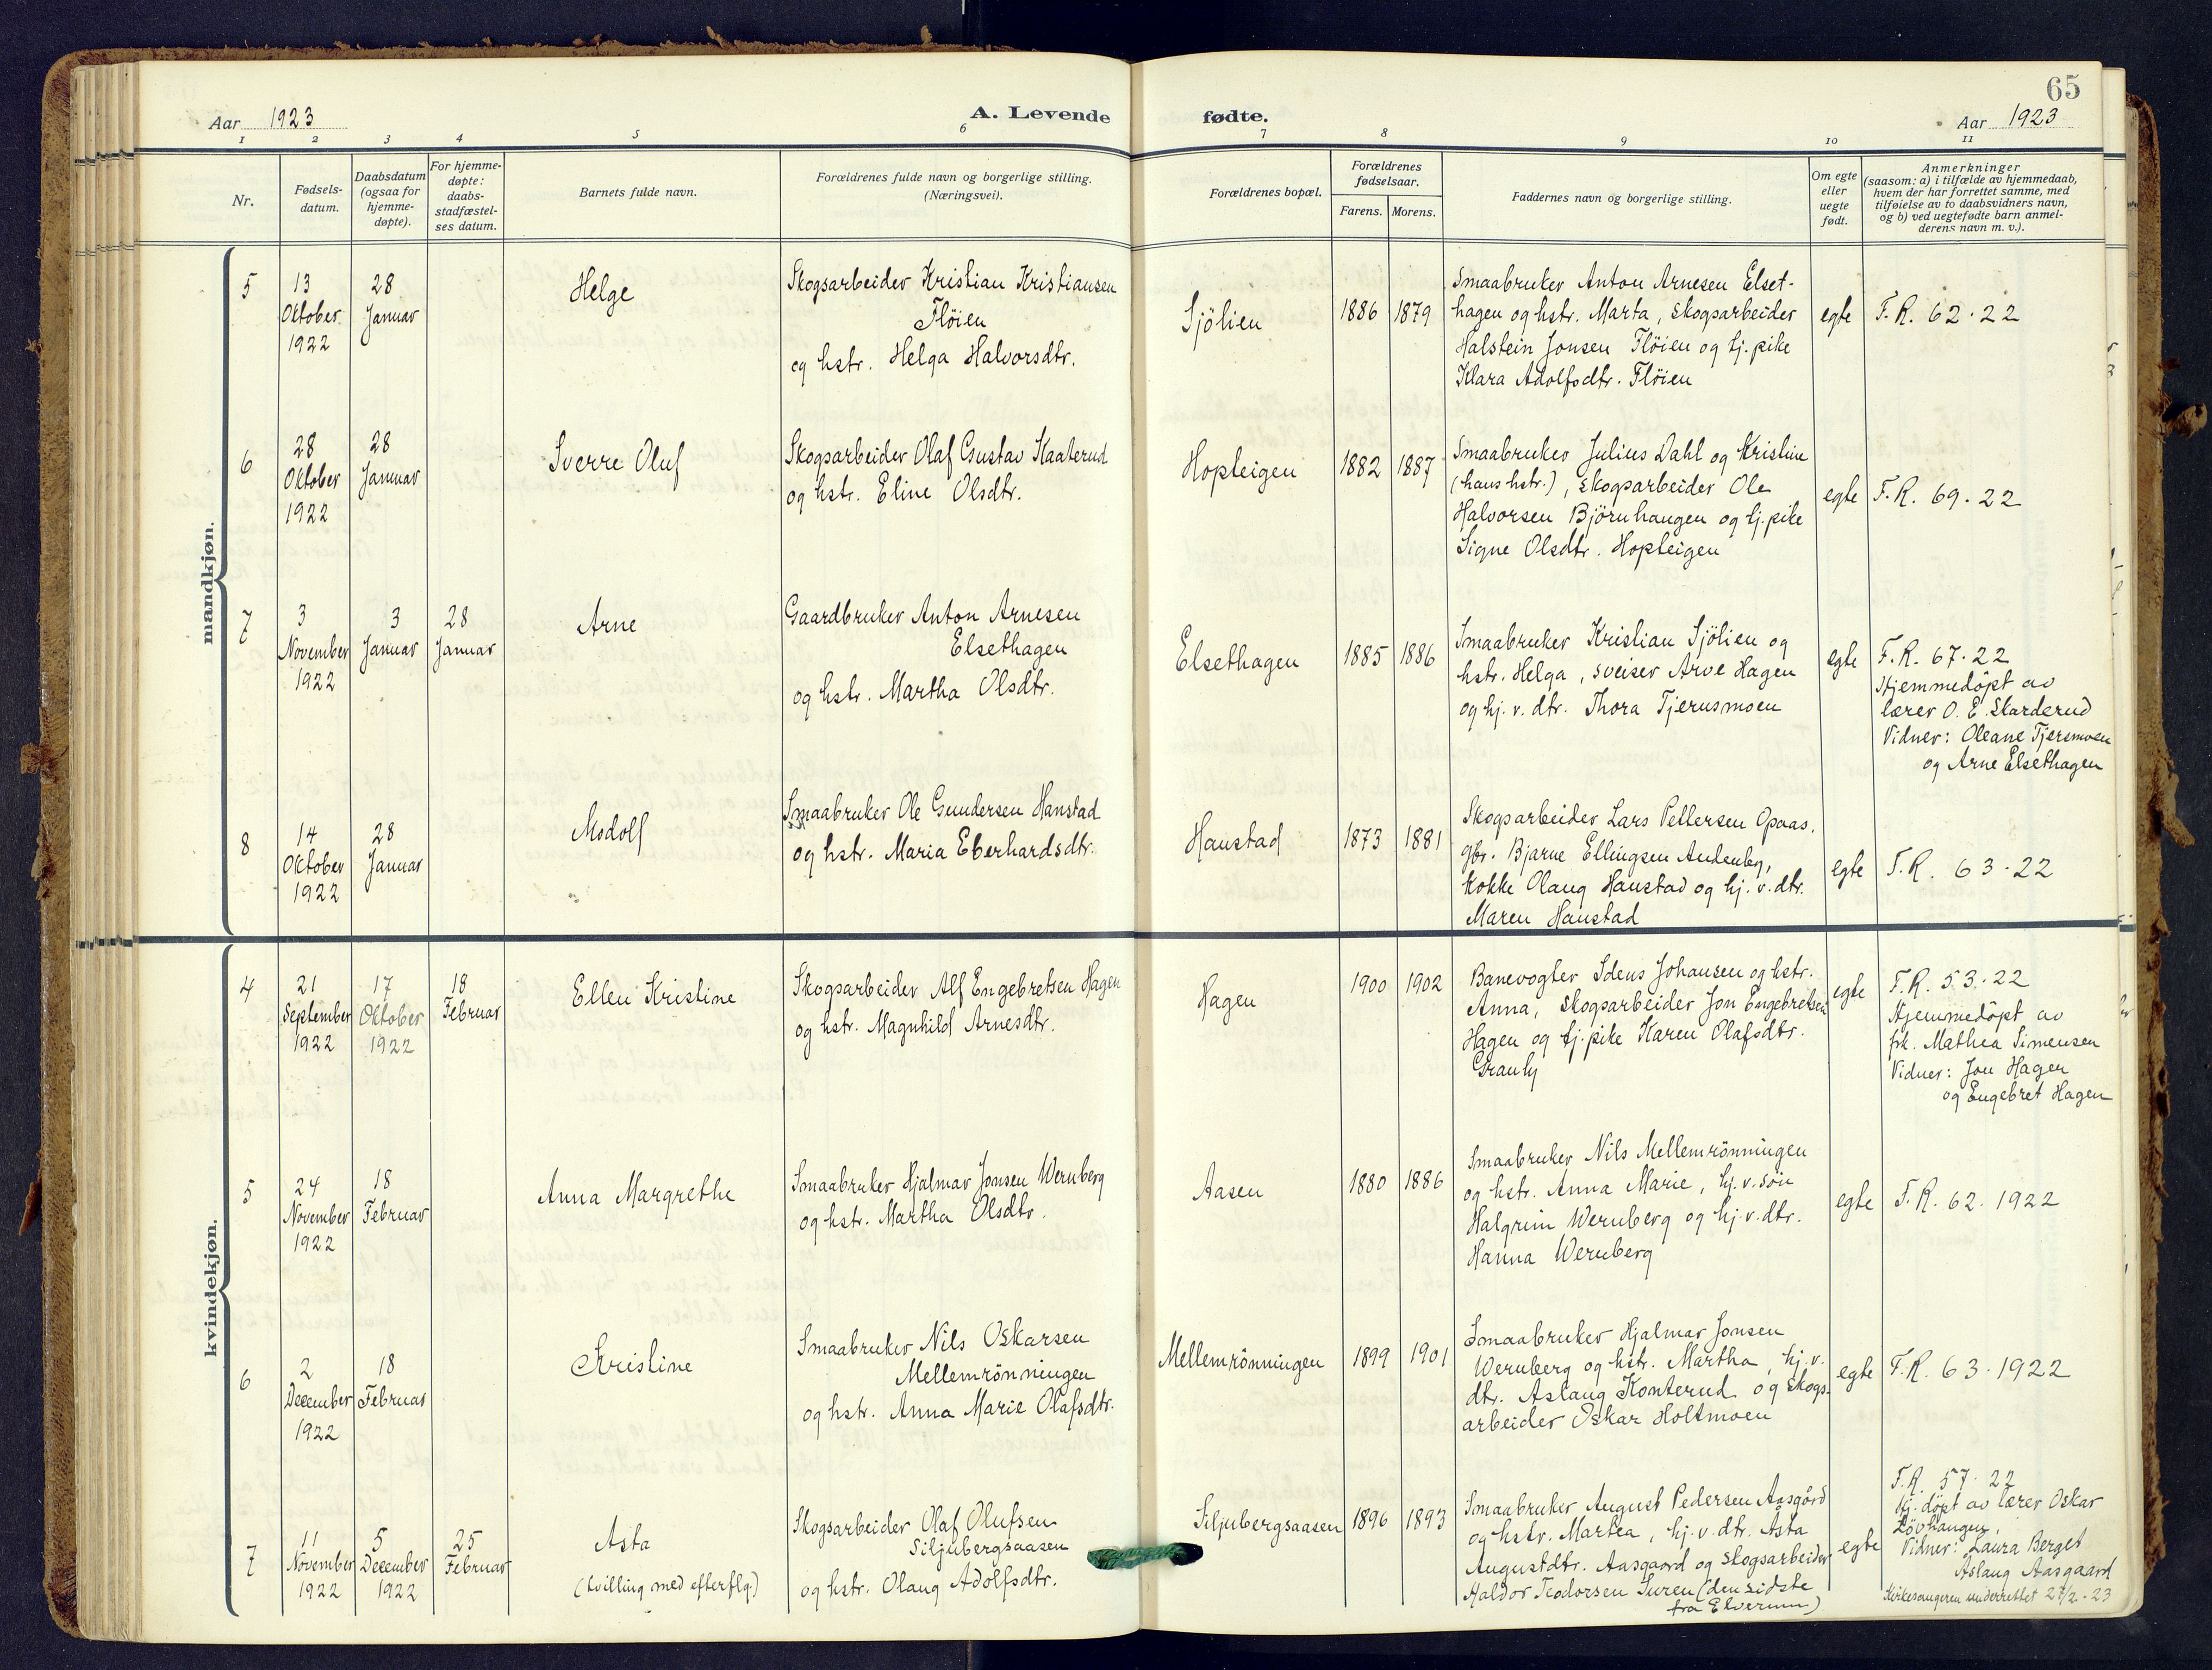 65
Aar 1923
A. Levende
fødte.
Aar 1923
1 2 3 4 5 6 7 8 9 10 11
Nr.
Fødsels-
datum.
Daabsdatum
(ogsaa for
hjemme-
døpte).
For hjemme-
døpte:
daabs-
stadfæstel-
ses datum.
Barnets fulde navn.
Forældrenes fulde navn og borgerlige stilling.
(Næringsvei).
Forældrenes bopæl.
Forældrenes
fødselsaar.
Farens. Morens.
Faddernes navn og borgerlige stilling.
Om egte
eller
uegte
født.
Anmerkninger
(saasom: a) i tilfælde av hjemmedaab,
hvem der har forrettet samme, med
tilføielse av to daabsvidners navn,
og b) ved uegtefødte barn anmel-
derens navn m. v.).
mandkjøn.
5
13
Oktober
1922
28
Januar
Helge
Skogsarbeider Kristian Kristiansen
Fløien
og hstr. Helga Halvorsdtr.
Sjölien
1886 1879
Smaabruker Anton Arnesen Elset-
hagen og hstr. Marta, skogsarbeider
Halstein Jonsen Fløien og tj.pike
Klara Adolfsdtr. Fløien
egte
F.R. 62.22
6
28
Oktober
1922
28
Januar
Sverre Oluf
Skogsarbeider Olaf Gustav Kaaterud
og hstr. Eline Olsdtr.
Hopleigen
1882 1887
Smaabruker Julius Dahl og Kristine
(hans hstr.), skogsarbeider Ole
Halvorsen Björnhaugen og tj.pike
Signe Olsdtr. Hopleigen
egte
F.R. 69.22
7
3
November
1922
3
Januar
28
Januar
Arne
Gaardbruker Anton Arnesen
Elsethagen
og hstr. Martha Olsdtr.
Elsethagen
1885 1886
Smaabruker Kristian Sjölien og
hstr. Helga, sveiser Arve Hagen
og hj.v.dtr. Thora Tjernsmoen
egte
F.R. 67.22
Hjemmedöpt av
lærer O. E. Skarderud
Vidner: Oleane Tjersmoen
og Arne Elsethagen
8
14
Oktober
1922
28
Januar
Modolf
Smaabruker Ole Gundersen Hanstad
og hstr. Maria Eberhardsdtr.
Hanstad
1873 1881
Skogsarbeider Lars Pettersen Opaas.
gbr. Bjarne Ellingsen
Kokke Olaug Hanstad og hj.v.dtr.
Maren Hanstad
egte
F.R. 63.22
kvindekjøn.
4
21
September
1922
17
Oktober
1922
18
Februar
Ellen Kristine
Skogsarbeider Alf Engebretsen Hagen
og hstr. Magnhild Arnesdtr.
Hagen
1900 1902
Banevogter Idens Johansen og hstr.
Anna, skogsarbeider Jon Engebretsen
Hagen og tj.pike Karen Olafsdtr.
Granly
egte
F.R. 53.22
Hjemmedöpt av
frk. Mathea Simensen
Vidner: Jon Hagen
og Engebret Hagen
5
24
November
1922
18
Februar
Anna Margrethe
Smaabruker Hjalmar Jonsen Wernberg
og hstr. Martha Olsdtr.
Aasen
1880 1886
Smaabruker Nils Mellemrönningen
og hstr. Anna Marie, hj.v.sön
Halgrim Wernberg og hj.v.dtr.
Hanna Wernberg
egte
F.R. 62.1922
6
2
December
1922
18
Februar
Kristine
Smaabruker Nils Oskarsen
Mellemrönningen
og hstr. Anna Marie Olafsdtr.
Mellemrönningen
1899 1901
Smaabruker Hjalmar Jonsen
Wernberg og hstr. Martha, hj.v.
dtr. Aslaug Konterud og skogs-
arbeider Oskar Holtmoen
egte
F.R. 63.1922
7
11
November
1922
5
December
1922
25
Februar
Asta
(tvilling med efterflg.)
Skogsarbeider Olaf Olufsen
Siljubergsaasen
og hstr. Olaug Adolfsdtr.
Siljubergsaasen
1896 1893
Smaabruker August Pedersen Aasgård
og hstr. Martea, hj.v.dtr. Asta
Augustdtr. Aasgaard og skogsarbeider
Haldor Teodorsen Furen (den sidste
fra Elverum)
egte
F.R. 57.22
Hj.döpt av lærer Oskar
Lövhaugen,
Vidner: Laura Berget
Aslaug Aasgaard
Kirkesangeren underrettet 27/2-23